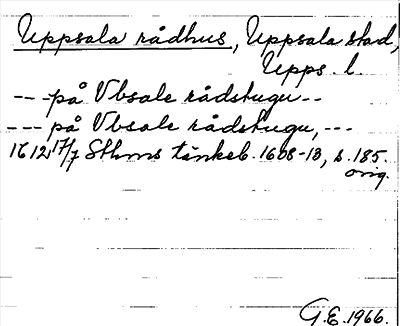 Uppsala rådhus, Uppsala stad,
Upps. l.
--- på Vbsale rådstugu --
--- på Vbsale rådstugu, ---
1612 17/7 Sthms tänkeb. 1608-13, s. 185.
orig.
G.E. 1966.